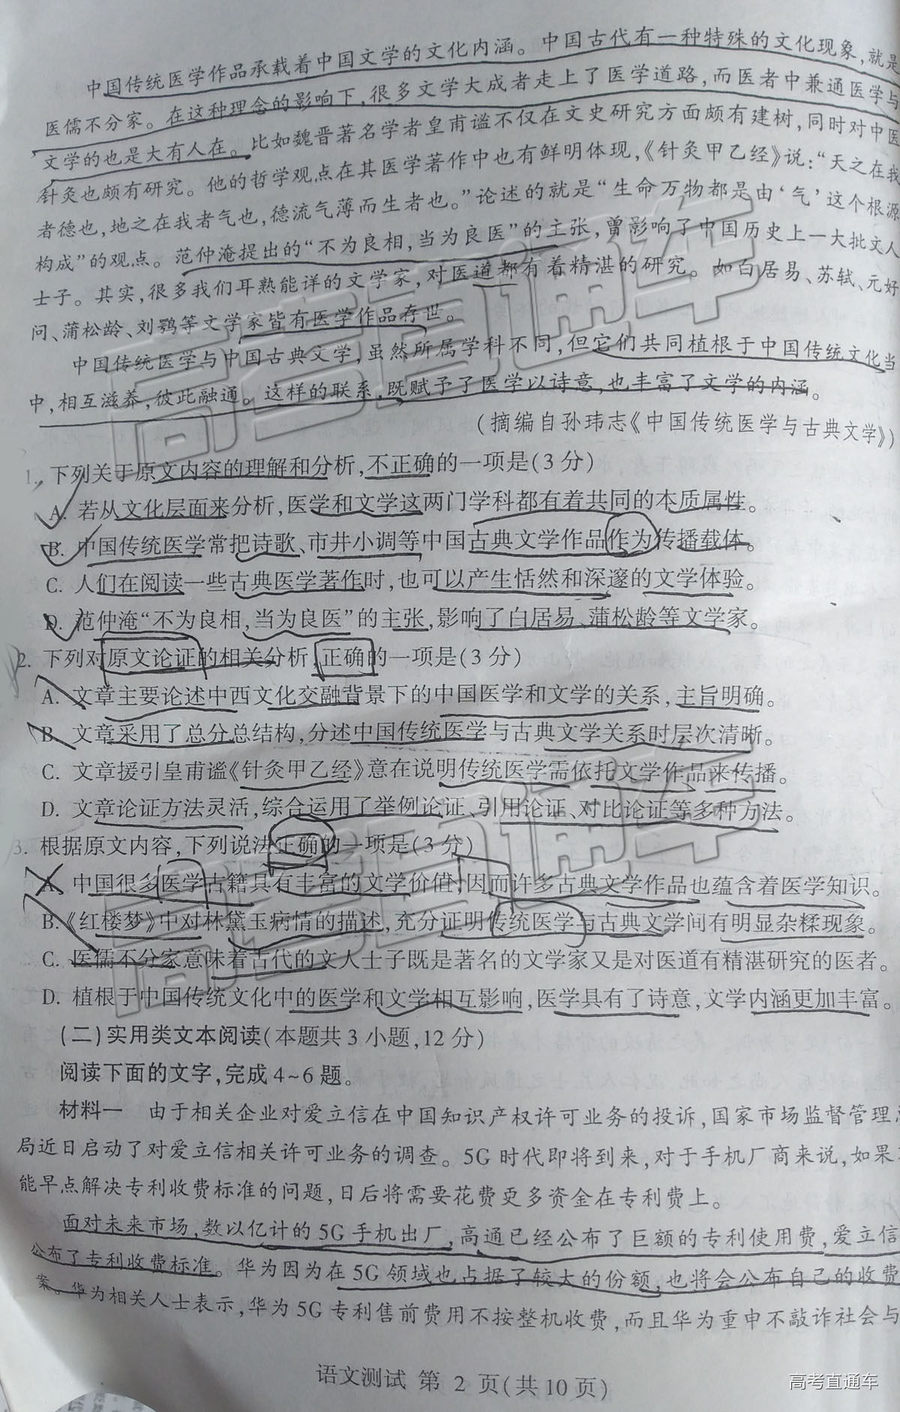 中国传统医学作品承载着中国文学的文化内涵。中国古代有一种特殊的文化现象,就是
医儒不分家。在这种理念的影响下,很多文学大成者走上了医学道路,而医者中兼通医学与
文学的也是大有人在。比如魏晋著名学者皇甫谧不仅在文史研究方面颇有建树,同时对中医
针灸也颇有研究。他的哲学观点在其医学著作中也有鲜明体现,《针灸甲乙经》说:“天之在我
者德也,地之在我者气也,德流气薄而生者也。”论述的就是“生命万物都是由‘气’这个根源
构成”的观点。范仲淹提出的“不为良相,当为良医”的主张,曾影响了中国历史上一大批文人
士子。其实,很多我们耳熟能详的文学家,对医道都有着精湛的研究。如白居易、苏轼、元好
问、蒲松龄、刘鹗等文学家皆有医学作品存世。
中国传统医学与中国古典文学,虽然所属学科不同,但它们共同植根于中国传统文化当
中,相互滋养,彼此融通。这样的联系,既赋予了医学以诗意,也丰富了文学的内涵。
(摘编自孙玮志《中国传统医学与古典文学》)
1. 下列关于原文内容的理解和分析,不正确的一项是(3分)
A. 若从文化层面来分析,医学和文学这两门学科都有着共同的本质属性。
B. 中国传统医学常把诗歌、市井小调等中国古典文学作品作为传播载体。
C. 人们在阅读一些古典医学著作时,也可以产生恬然和深邃的文学体验。
D. 范仲淹“不为良相,当为良医”的主张,影响了白居易、蒲松龄等文学家。
2. 下列对原文论证的相关分析,正确的一项是(3分)
A. 文章主要论述中西文化交融背景下的中国医学和文学的关系,主旨明确。
B. 文章采用了总分总结构,分述中国传统医学与古典文学关系时层次清晰。
C. 文章援引皇甫谧《针灸甲乙经》意在说明传统医学需依托文学作品来传播。
D. 文章论证方法灵活,综合运用了举例论证、引用论证、对比论证等多种方法。
3. 根据原文内容,下列说法正确的一项是(3分)
A. 中国很多医学古籍具有丰富的文学价值,因而许多古典文学作品也蕴含着医学知识。
B.《红楼梦》中对林黛玉病情的描述,充分证明传统医学与古典文学间有明显杂糅现象。
C. 医儒不分家意味着古代的文人士子既是著名的文学家又是对医道有精湛研究的医者。
D. 植根于中国传统文化中的医学和文学相互影响,医学具有了诗意,文学内涵更加丰富。
(二)实用类文本阅读(本题共3小题,12分)
阅读下面的文字,完成4~6题。
材料一 由于相关企业对爱立信在中国知识产权许可业务的投诉,国家市场监督管理
局近日启动了对爱立信相关许可业务的调查。5G时代即将到来,对于手机厂商来说,如果
能早点解决专利收费标准的问题,日后将需要花费更多资金在专利费上。
面对未来市场,数以亿计的5G手机出厂,高通已经公布了巨额的专利使用费,爱立信
公布了专利收费标准。华为因为在5G领域也占据了较大的份额,也将会公布自己的收费
案。华为相关人士表示,华为5G专利售前费用不按整机收费,而且华为重申不敲诈社会与
语文测试 第2页(共10页)
高考直通车
高考直通车
高考直通车